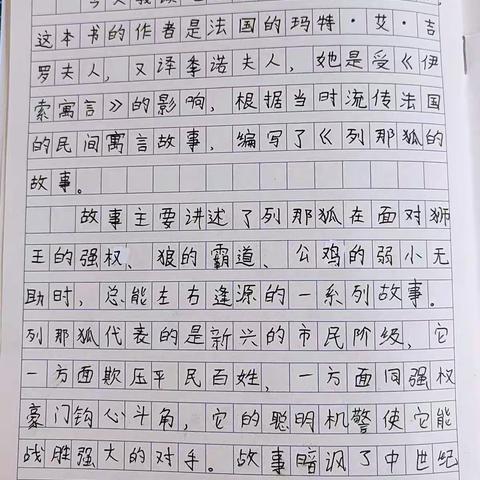 这本书的作者是法国的玛特·艾·吉
罗夫人，又译季诺夫人，她是受《伊
索寓言》的影响，根据当时流传法国
的民间寓言故事，编写了《列那狐的
故事。
故事主要讲述了列那狐在面对狮
王的强权、狼的霸道、公鸡的弱小无
助时，总能左右逢源的一系列故事。
列那狐代表的是新兴的市民阶级，它
一方面欺压平民百姓，一方面同强权
豪门钩心斗角，它的聪明机警使它能
战胜强大的对手。故事暗讽了中世纪